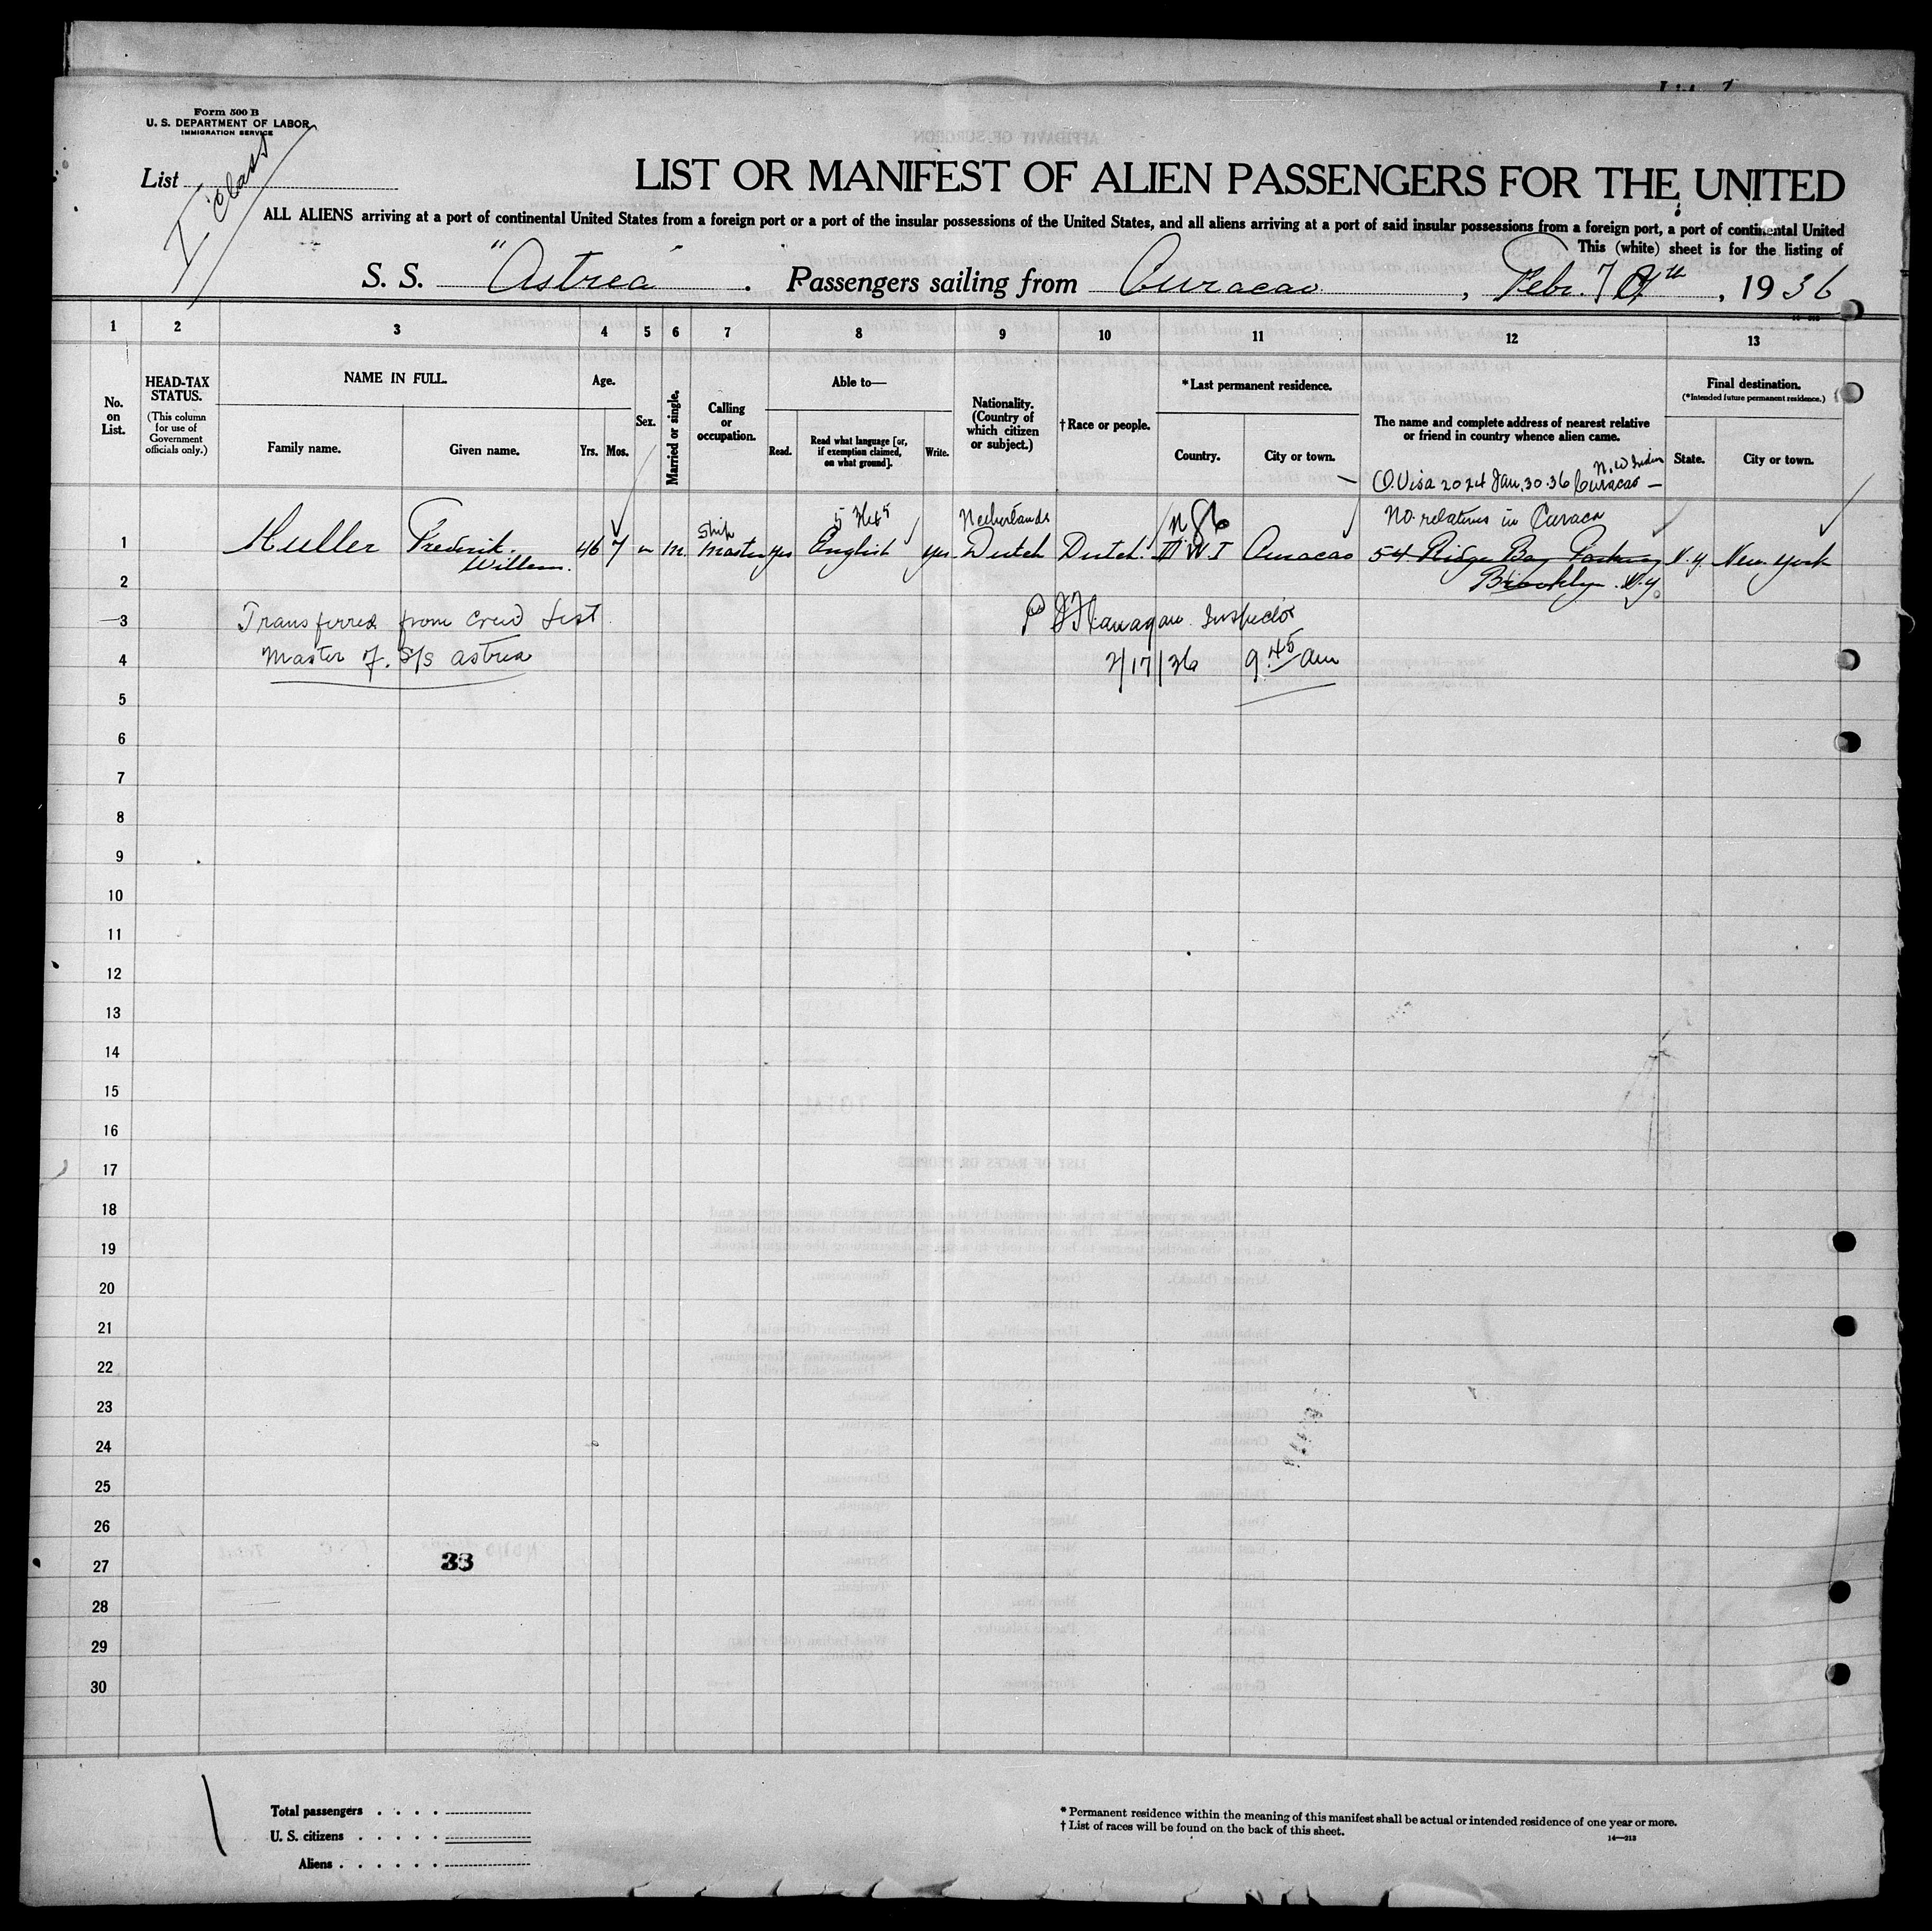 Form 500 B
U. S. DEPARTMENT OF LABOR
IMMIGRATION SERVICE
List
I class
LIST OR MANIFEST OF ALIEN PASSENGERS FOR THE UNITED
ALL ALIENS arriving at a port of continental United States from a foreign port or a port of the insular possessions of the United States, and all aliens arriving at a port of said insular possessions from a foreign port, a port of continental United
This (white) sheet is for the listing of
S. S. "Astrea" . Passengers sailing from Curacao , Febr. 7th , 1936
1 2 3 4 5 6 7 8 9 10 11 12 13
No. on List.
HEAD-TAX STATUS.
(This column for use of Government officials only.)
NAME IN FULL.
Family name.
Given name.
Age.
Yrs.
Mos.
Sex.
Married or single.
Calling or occupation.
Able to—
Read.
Read what language [or, if exemption claimed, on what ground].
Write.
Nationality. (Country of which citizen or subject.)
† Race or people.
*Last permanent residence.
Country.
City or town.
The name and complete address of nearest relative or friend in country whence alien came.
Final destination.
(*Intended future permanent residence.)
State.
City or town.
Visa 2024 Jan. 30.36 Curacao — N. W Indies
Ship
Netherlands
No relatives in Curaca
1 Muller Frederik. 46 7 m M. Master yes English yes Dutch Dutch. W I Curacao 54. Ridge Bay N.Y. New York
Willem. Brooklyn N.y.
2
3 Transferred from Crew List Flanagan Inspector
4 Master of S/S Astrea 2/17/36 9.45 am
5
6
7
8
9
10
11
12
13
14
15
16
17
18
19
20
21
22
23
24
25
26
27
33
28
29
30
Total passengers . . . .
U. S. citizens . . . . .
Aliens . . . . . .
* Permanent residence within the meaning of this manifest shall be actual or intended residence of one year or more.
† List of races will be found on the back of this sheet.
14—213